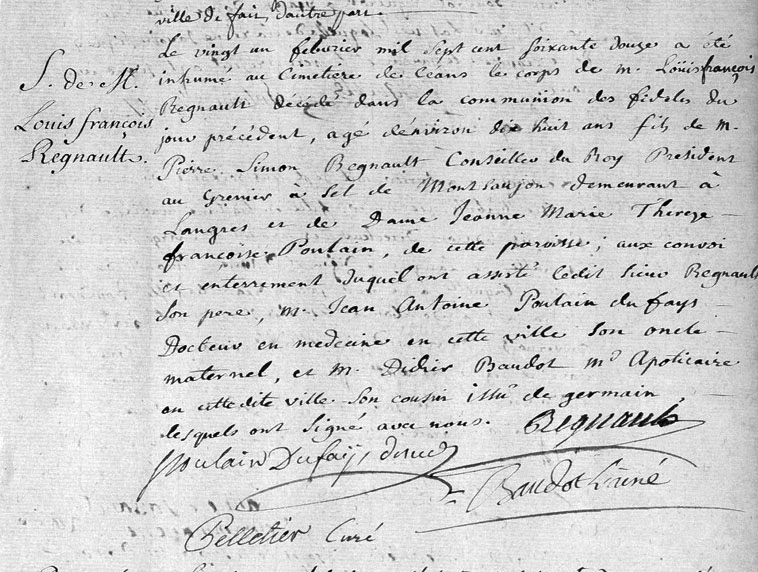 ville de fait, d'autre part.
Le vingt un febvrier mil sept cent soixante douze a été
S. de M.
Louis françois
Regnault.
inhumé au Cimetiere de Ceans le corps de m. Loüis françois
Regnault décédé dans la communion des fideles du
jour précédent, agé d'environ dix huit ans fils de m.
Pierre Simon Regnault Conseiller du Roy President
au Grenier à Sel de Montsaujon demeurant à
Langres et de Dame Jeanne Marie Thereze
françoise Poulain, de cette paroisse; aux convoi
et enterrement duquel ont assisté ledit sieur Regnault
son pere, m. Jean Antoine Poulain du fays
Docteur en medecine en cette ville son oncle
maternel, et m. Didier Baudot md Apoticaire
en cette dite ville son cousin issu de germain,
lesquels ont signé avec nous. Regnault
Poulain Dufaÿ
Baudot l'ainé
Pelletier Curé